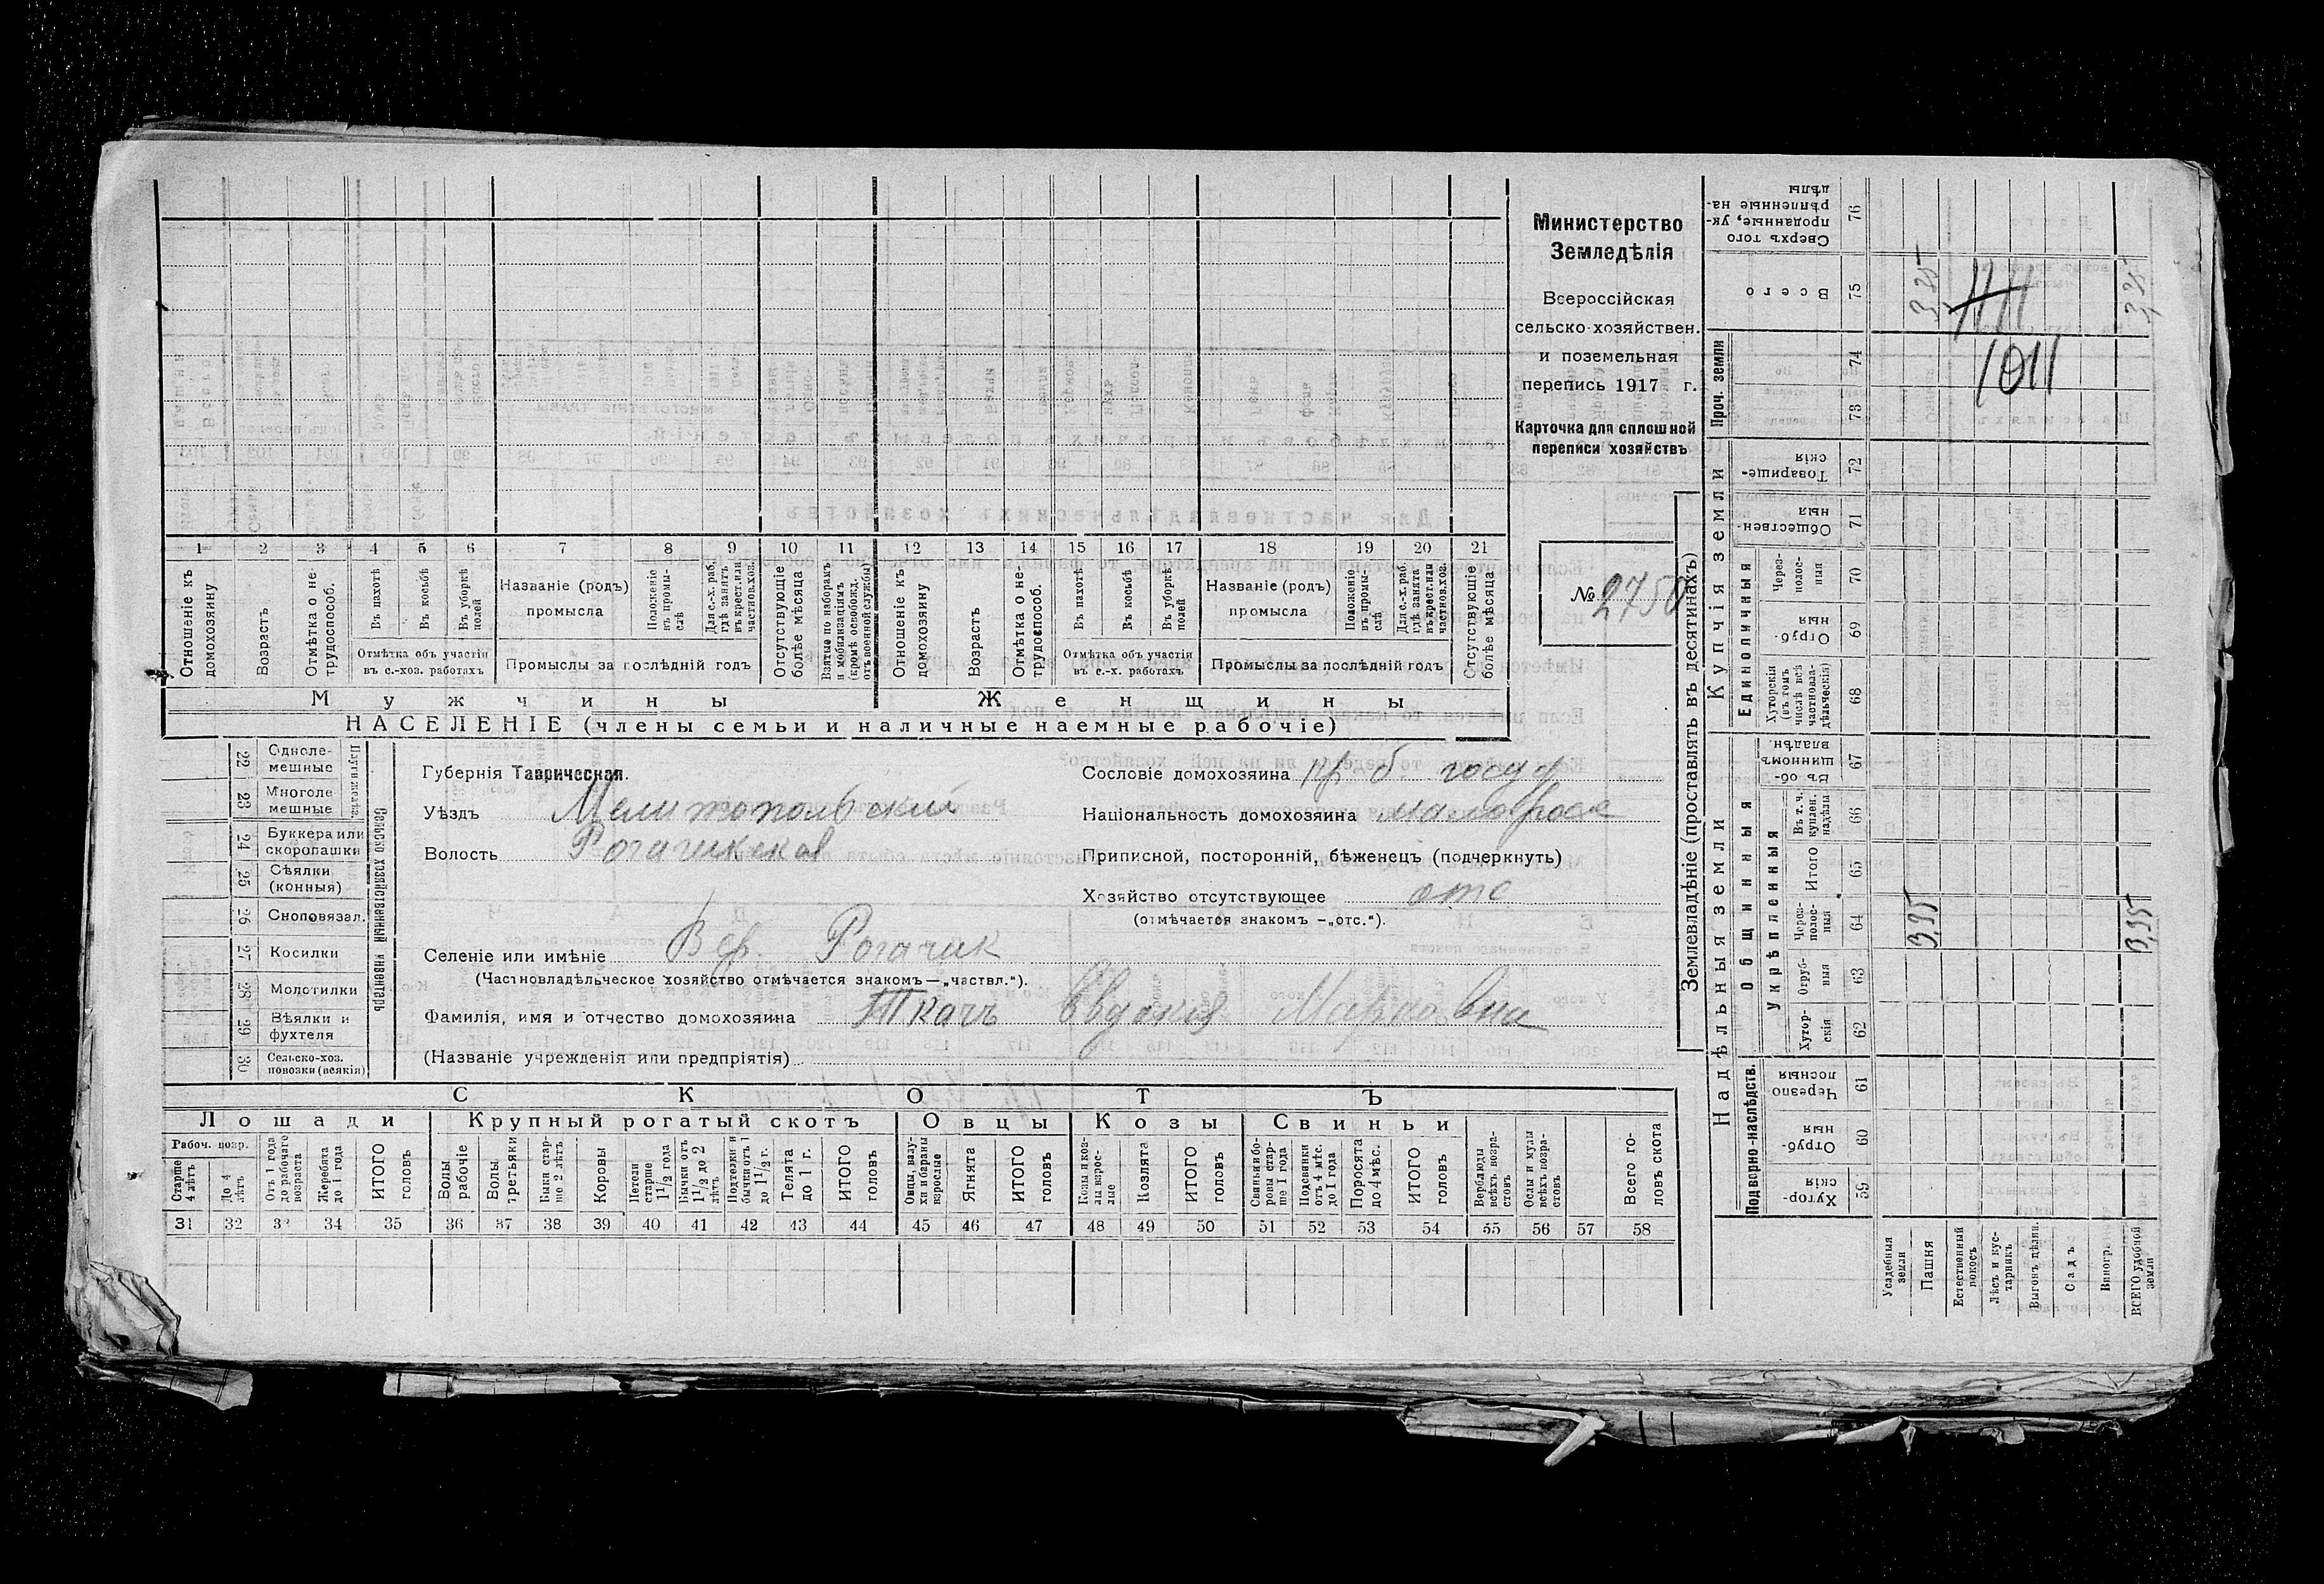 Министерство
Земледѣлія
Всероссійская
сельско-хозяйствен.
и поземельная
перепись 1917 г.
Карточка для сплошной
переписи хозяйствъ
№ 2750
1 2 3 4 5 6 7 8 9 10 11 12 13 14 15 16 17 18 19 20 21
Отношеніе къ домохозяину
Возрастъ
Отмѣтка о не-трудоспособ.
Въ пахотѣ
Въ косьбѣ
Въ уборкѣ полей
Отмѣтка объ участіи
въ с.-хоз. работахъ
Названіе (родъ)
промысла
Положеніе въ промы-слѣ
Для с.-х. раб. гдѣ занятъ въ крест. или частнов. хоз.
Промыслы за послѣдній годъ
Отсутствующіе болѣе мѣсяца
Взятые по наборамъ и мобилизаціямъ (кромѣ освобожд. отъ военной службы)
Отношеніе къ домохозяину
Возрастъ
Отмѣтка о не-трудоспособ.
Въ пахотѣ
Въ косьбѣ
Въ уборкѣ полей
Отмѣтка объ участіи
въ с.-х. работахъ
Названіе (родъ)
промысла
Положеніе въ промы-слѣ
Для с.-х. раб. гдѣ занята въ крест. или частнов. хоз.
Промыслы за послѣдній годъ
Отсутствующіе болѣе мѣсяца
Мужчины
Женщины
НАСЕЛЕНІЕ (члены семьи и наличные наемные рабочіе)
22 Одноле-мешные
23 Многоле мешные
24 Буккера или скоропашки
25 Сѣялки (конныя)
26 Сноповязал.
27 Косилки
28 Молотилки
29 Вѣялки и фухтеля
30 Сельско-хоз. повозки (всякія)
Сельско хозяйственный инвентарь
Губернія Таврическая.
Уѣздъ Мелитопольский
Волость Рогачикская
Сословіе домохозяина кр. б. госуд
Національность домохозяина малоросс
Приписной, посторонній, бѣженец (подчеркнуть)
Хозяйство отсутствующее отс
(отмѣчается знакомъ —„отс.“).
Селеніе или имѣніе Вер. Рогачик
(Частновладѣльческое хозяйство отмѣчается знакомъ—„частвл.“).
Фамилія, имя и отчество домохозяина Ткачъ Евдокия Марковна
(Названіе учрежденія или предпріятія)
СКОТЪ
Лошади
Крупный рогатый скотъ
Овцы
Козы
Свиньи
Рабоч. возр.
Старше 4 лѣтъ
До 4 лѣтъ
Отъ 1 года до рабочаго возраста
Жеребята до 1 года
ИТОГО головъ
Волы рабочіе
Волы третьяки
Быки стар-ше 2 лѣтъ
Коровы
Нетели старше 1 1/2 года
Бычки отъ 1 1/2 до 2 лѣтъ
Подтелки и бычки отъ 1 до 1 1/2 г.
Телята до 1 г.
ИТОГО головъ
Овцы, валу-хи и бараны взрослые
Ягнята
ИТОГО головъ
Козы и коз-лы взрос-лые
Козлята
ИТОГО головъ
Свиньи и бо-ровы стар-ше 1 года
Подсвинки отъ 4 мѣс. до 1 года
Поросята до 4 мѣс.
ИТОГО головъ
Верблюды всѣхъ возра-стовъ
Ослы и мулы всѣхъ возра-стовъ
Всего го-ловъ скота
31 32 33 34 35 36 37 38 39 40 41 42 43 44 45 46 47 48 49 50 51 52 53 54 55 56 57 58
Землевладѣніе (проставлять въ десятинахъ)
Сверхъ того проданные, ук-рѣпленные на-дѣлы 76
Всего 75 3,35 3,35
1011
Проч. земли 74
73
Купчія земли
Товарище-скія 72
Обществен-ныя 71
Единоличныя
Через-полос-ныя 70
Отруб-ныя 69
Хуторскія (въ томъ числѣ всѣ частновла-дѣльческія) 68
Надѣльныя земли
Общинныя
Въ об-щинномъ владѣн. 67
Укрѣпленныя
Въ т. ч. куплен. надѣлы 66
Итого 65
Через-полос-ныя 64 3,35 3,35
Отруб-ныя 63
Хутор-скія 62
Подворно-наслѣдств.
Черезпо лосныя 61
Отруб-ныя 60
Хутор-скія 59
Усадебныя земли
Пашня
Естественный покосъ
Лѣсъ и кус-тарникъ
Выгонъ цѣлин.
Садъ
Виногр.
ВСЕГО удобной земли